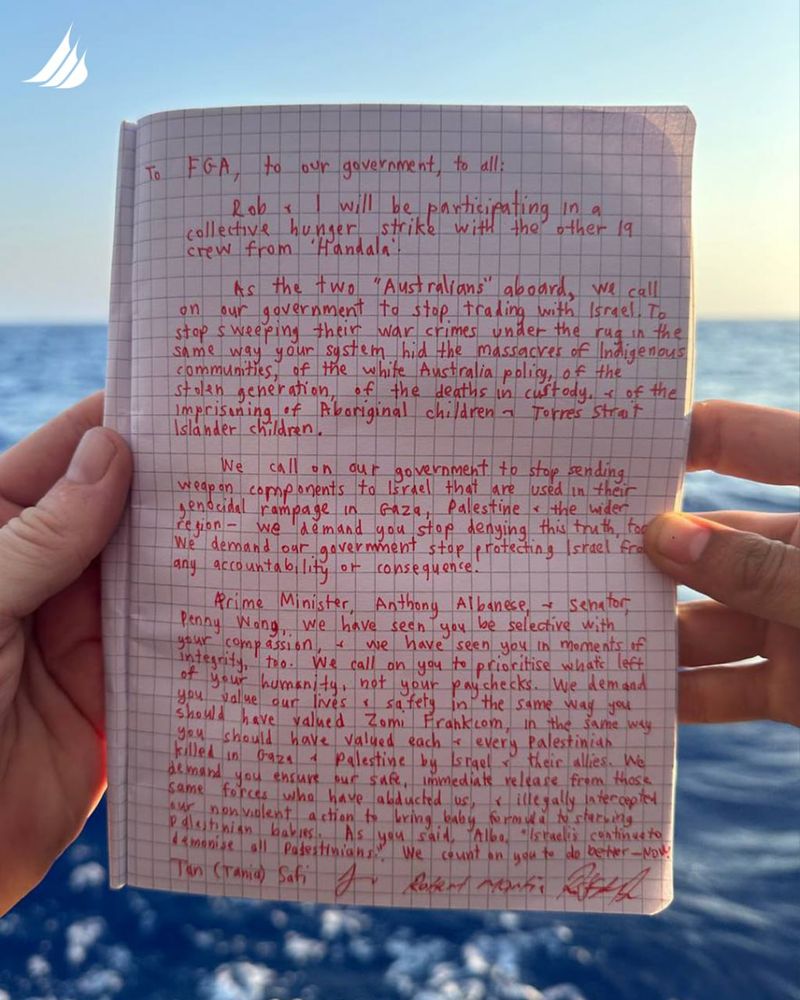 To FGA, to our government, to all:
Rob & I will be participating in a
collective hunger strike with the other 19
crew from 'Handala'.
As the two "Australians" aboard, we call
on our government to stop trading with Israel. To
stop sweeping their war crimes under the rug in the
same way your system hid the massacres of Indigenous
communities, of the white Australia policy, of the
stolen generation, of the deaths in custody, & of the
imprisoning of Aboriginal children & Torres Strait
Islander children.
We call on our government to stop sending
weapon components to Israel that are used in their
genocidal rampage in Gaza, Palestine & the wider
region - we demand you stop denying this truth, too
We demand our government stop protecting Israel fro
any accountability or consequence.
Prime Minister, Anthony Albanese, & senator,
Penny Wong, we have seen you be selective with
your compassion, & we have seen you in moments of
integrity, too. We call on you to prioritise what's left
of your humanity, not your paychecks. We demand
you value our lives & safety in the same way you
should have valued Zomi Frankcom, in the same way
you should have valued each & every Palestinian
killed in Gaza & Palestine by Israel & their allies. We
demand you ensure our safe, immediate release from those
same forces who have abducted us, & illegally intercepted
our nonviolent action to bring baby formula to starving
Palestinian babies. As you said, 'Albo, "Israelis continue to
demonise all Palestinians." We count on you to do better - Now!
Tan (Tania) Safi Robert Martin